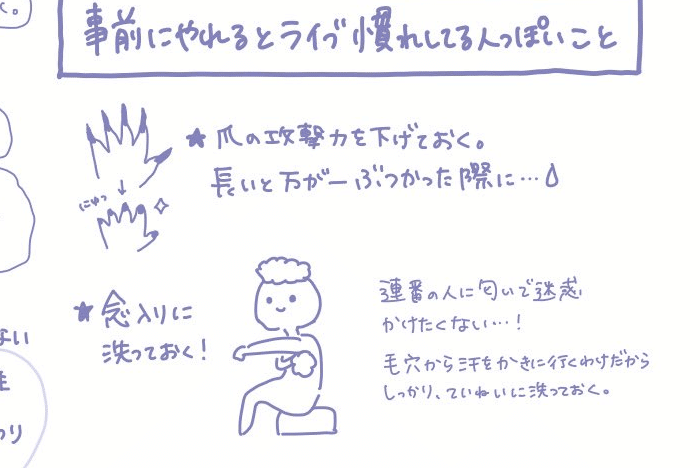 く。
事前にやれるとライブ慣れしてる人っぽいこと
★爪の攻撃力を下げておく。
長いと万が一ぶつかった際に…
にゅっ
★念入りに
洗っておく!
連番の人に匂いで迷惑
かけたくない…!
毛穴から汗をかきに行くわけだから
しっかり、ていねいに洗っておく。
ない
わり